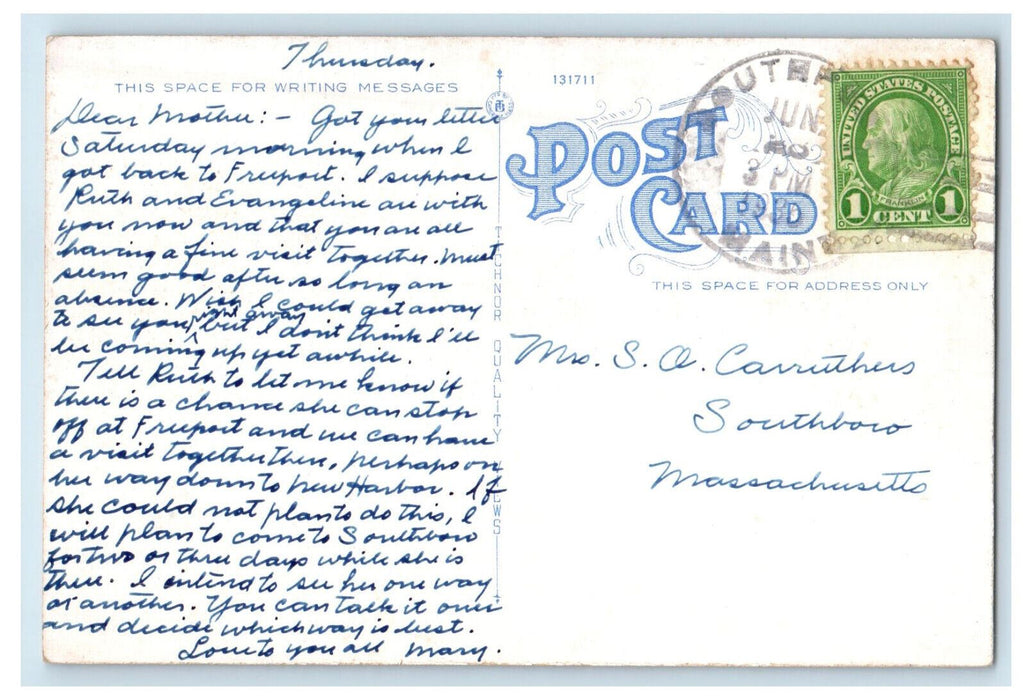 Thursday.
THIS SPACE FOR WRITING MESSAGES
Dear Mother:- Got your letter
Saturday morning when I
got back to Freeport. I suppose
Ruth and Evangeline are with
you now and that you are all
having a fine visit together. Must
seem good after so long an
absence. Wish I could get away
to see you right away but I don't think I'll
be coming up yet awhile.
Tell Ruth to let me know if
there is a chance she can stop
off at Freeport and we can have
a visit together there, perhaps on
her way down to New Harbor. If
she could not plan to do this, I
will plan to come to Southboro
for two or three days while she is
there. I intend to see her one way
or another. You can talk it over
and decide which way is best.
Love to you all Mary.
TECHNOR QUALITY VIEWS
131711
POST
CARD
SOUTH
JUN
3 PM
MAINE
UNITED STATES POSTAGE
FRANKLIN
1 CENT 1
THIS SPACE FOR ADDRESS ONLY
Mrs. S. A. Carruthers
Southboro
Massachusetts